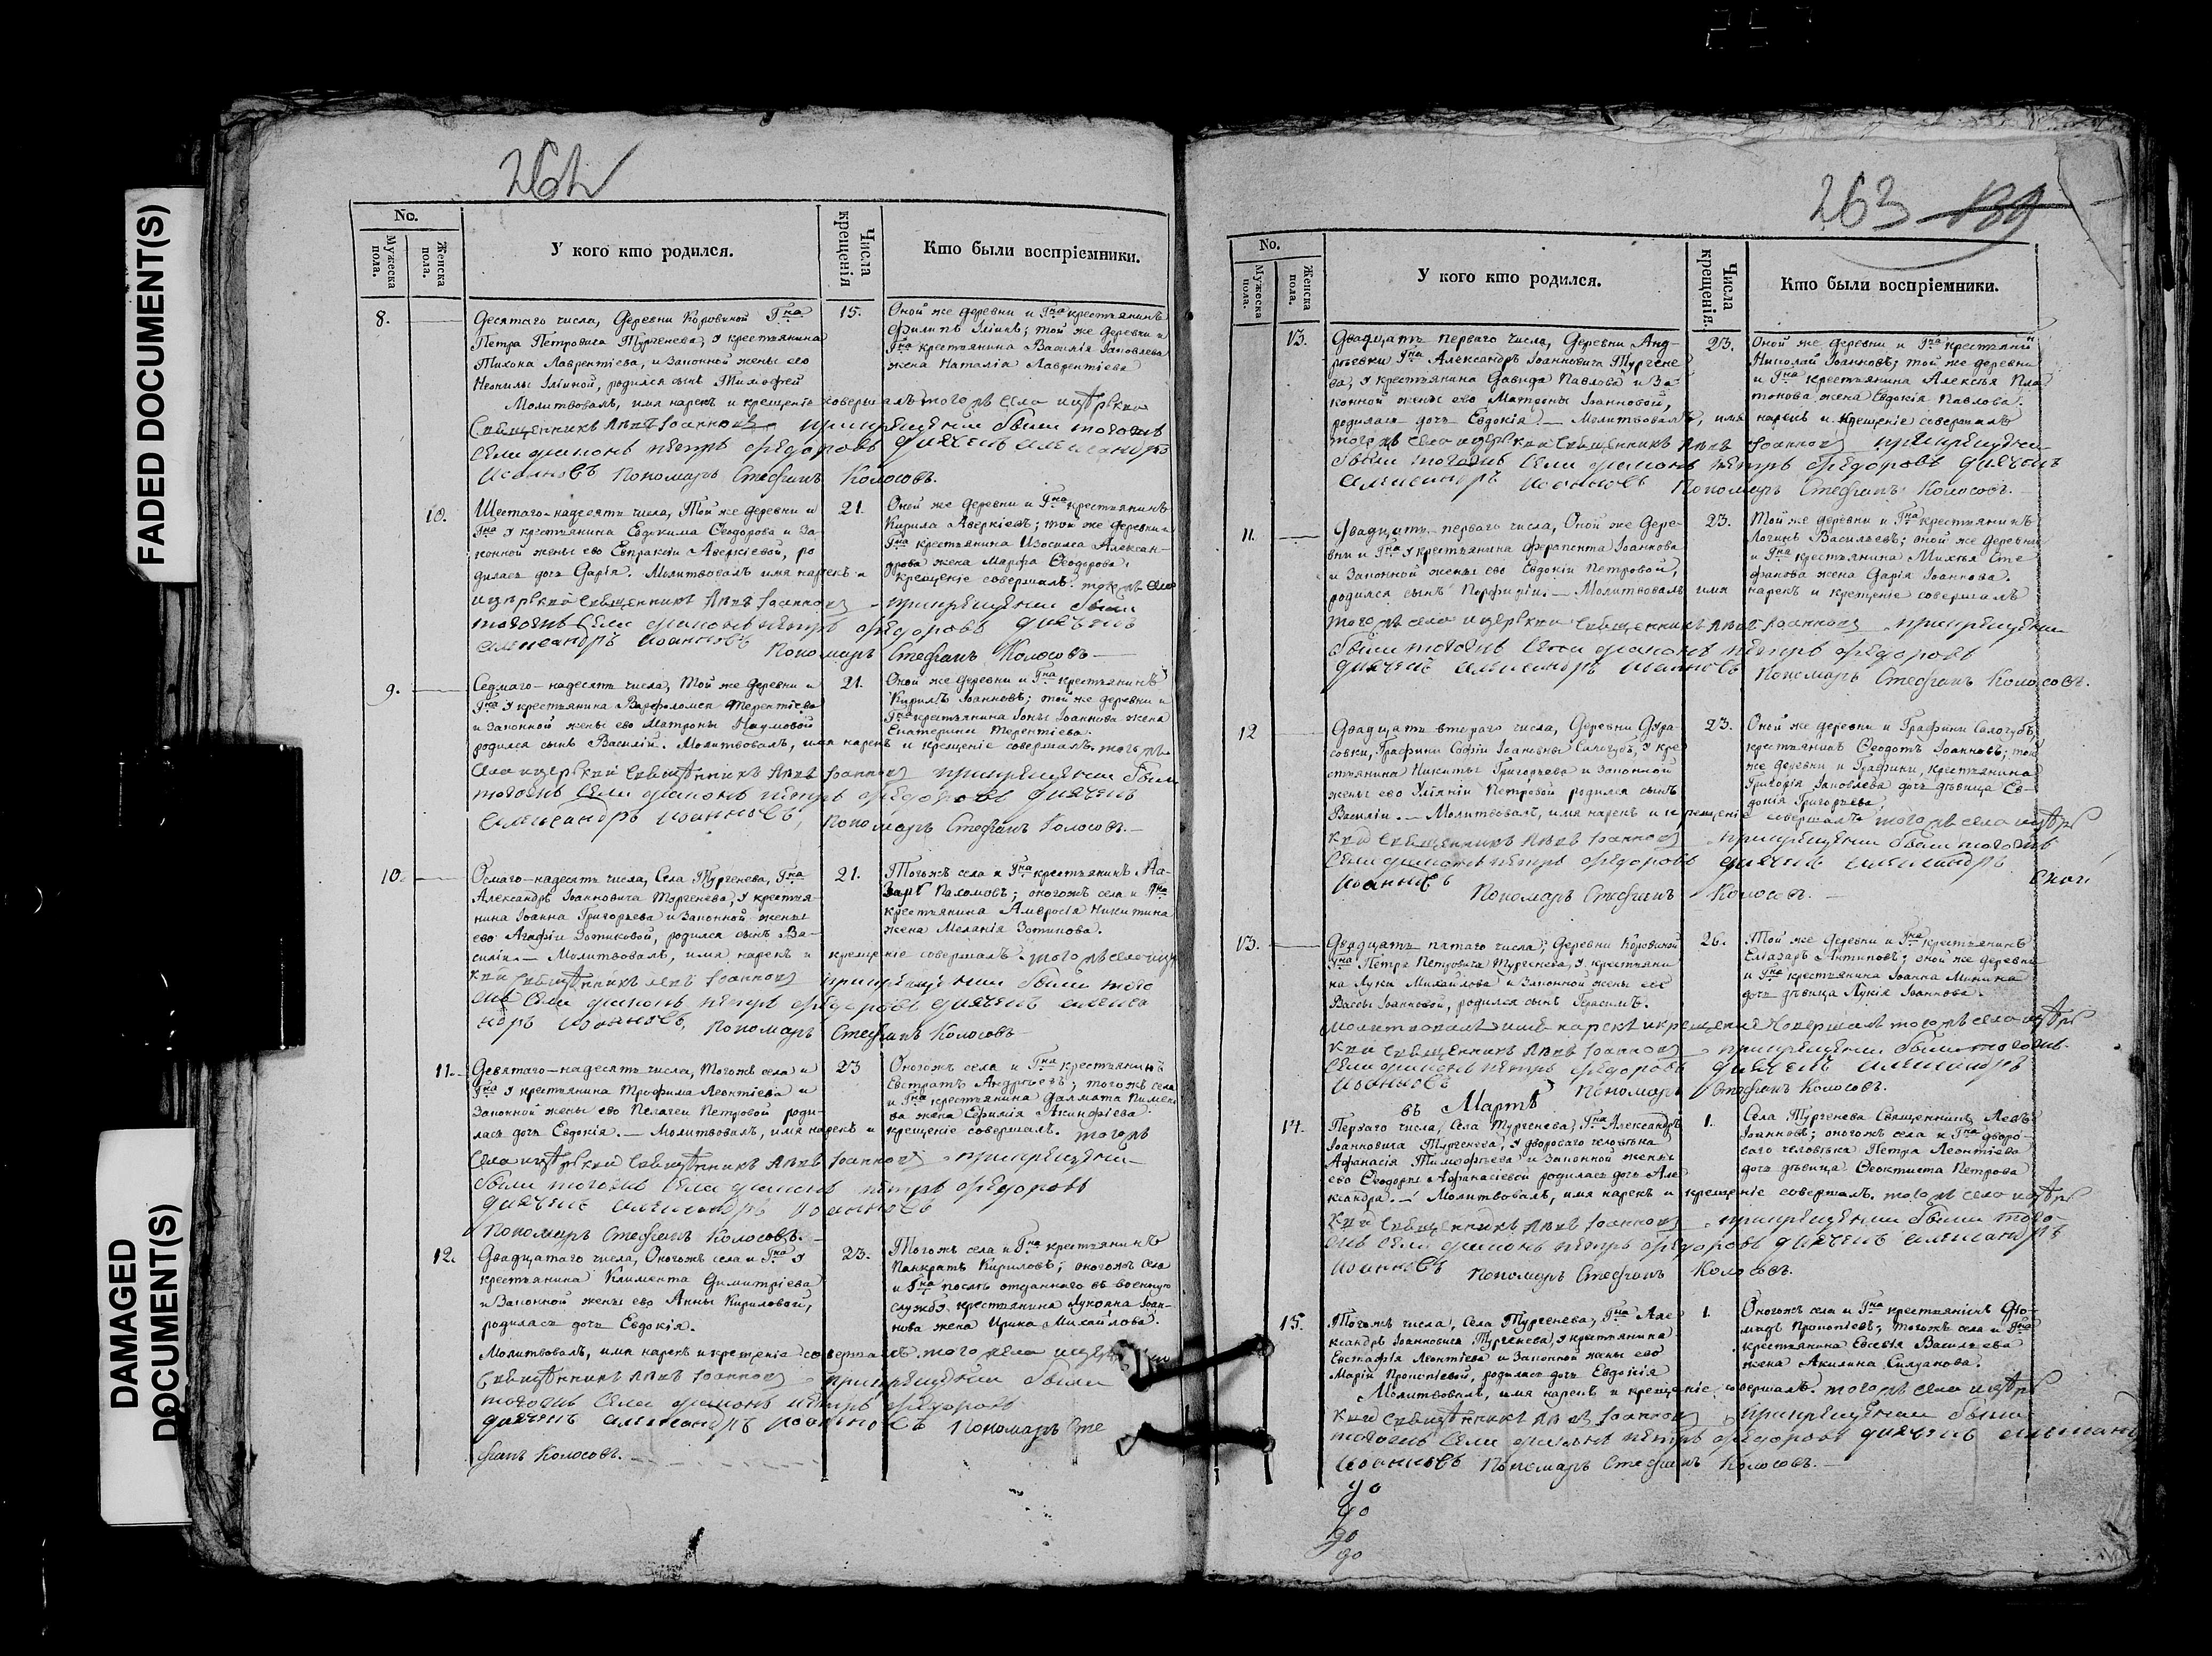 FADED DOCUMENT(S)
DAMAGED
DOCUMENT(S)
262
No.
Мужеска пола.
Женска пола.
У кого кто родился.
Числа крещенія
Кто были воспріемники.
8.
Десятаго числа, Деревни Коровиной Гна
Петра Петровича Тургенева, у крестьянина
Тихона Лаврентіева, и законной жены его
Неонилы Іліиной, родился сынъ Тимофей
15.
Оной же деревни и Гна крестьянинъ
Филипъ Іліинъ; той же деревни и
Гна крестьянина Василія Іаковлева
жена Наталія Лаврентіева
Молитвовалъ, имя нарекъ и крещеніе совершалъ того жъ села церкви
Священникъ Левъ Іоанновъ прикрещеніи были тогожъ
села діаконъ петръ федоровъ дьячекъ александръ
иоанновъ Пономарь Стефанъ Колосовъ.
10.
Шестаго-надесять числа, Той же деревни и
Гна у крестьянина Евдокима Ѳеодорова и за-
конной жены его Евпраксіи Аверкіевой, ро
дилась дочь Дарія. Молитвовалъ имя нарекъ и
21.
Оной же деревни и Гна крестьянинъ
Кирила Аверкіевъ; той же деревни и
Гна крестьянина Изосима Алексан-
дрова жена Марфа Ѳеодорова.
крещеніе совершалъ. того жъ села
церкви священникъ Левъ Іоанновъ прикрещеніи были
тогожъ села діаконъ петръ федоровъ дьячекъ
александръ иоанновъ Пономарь Стефанъ Колосовъ
9.
Седмаго-надесять числа, Той же деревни и
Гна у крестьянина Варфоломея Терентіева
и законной жены его Матроны Наумовой
родился сынъ Василій. Молитвовалъ, имя нарекъ и крещеніе совершалъ. того жъ
21.
Оной же деревни и Гна крестьянинъ
Кирилъ Іоанновъ; той же деревни и
Гна крестьянина Іоны Іоаннова жена
Екатерина Терентіева.
села церкви священникъ Левъ Іоанновъ прикрещеніи были
тогожъ села діаконъ петръ федоровъ дьячекъ
александръ иоанновъ, Пономарь Стефанъ Колосовъ.
10.
Осмаго-надесять числа, Села Тургенева, Гна
Александра Іоанновича Тургенева, у крестья-
нина Іоанна Григорьева и законной жены
его Агафіи Зотиковой, родился сынъ Ва-
силій. — Молитвовалъ, имя нарекъ и крещеніе совершалъ. того жъ села цер
21.
Тогожъ села и Гна крестьянинъ На-
заръ Пахомовъ; оногожъ села и Гна
крестьянина Амвросія Никитина
жена Меланія Зотикова.
кви священникъ левъ Іоанновъ прикрещеніи были того
жъ села діаконъ петръ федоровъ дьячекъ алекса
ндръ иоанновъ, Пономарь Стефанъ Колосовъ
11.
Девятаго-надесять числа, Тогожъ села и
Гна у крестьянина Трофима Леонтіева и
законной жены его Пелагеи Петровой роди-
лась дочь Евдокія. — Молитвовалъ, имя нарекъ и крещеніе совершалъ. того жъ
23
Оногожъ села и Гна крестьянинъ
Евстратъ Андреевъ; тогожъ села
и Гна крестьянина Далмата Пимено
ва жена Ефимія
села церкви священникъ Левъ Іоанновъ прикрещеніи
были тогожъ села діаконъ петръ федоровъ
дьячекъ александръ иоанновъ
Пономарь Стефанъ Колосовъ.
12.
Двадцатаго числа, Оногожъ села и Гна у
крестьянина Климента Димитріева
и законной жены его Анны Кириловой,
родилась дочь Евдокія.
23.
Тогожъ села и Гна крестьянинъ
Панкратъ Кириловъ; оногожъ села
и Гна послѣ отданнаго въ военную
службу крестьянина Лукояна Іоан-
нова жена Ирина Михайлова.
Молитвовалъ, имя нарекъ и крещеніе совершалъ. того жъ села церкви
священникъ Левъ Іоанновъ прикрещеніи были
тогожъ села діаконъ петръ федоровъ
дьячекъ александръ иоанновъ Пономарь Сте
фанъ Колосовъ.
263 139
No.
Мужеска пола.
Женска пола.
У кого кто родился.
Числа крещенія.
Кто были воспріемники.
13.
Двадцать перваго числа, Деревни Анд-
реевки Гна Александра Іоанновича Тургене
ва, у крестьянина Давида Павлова и за-
конной жены его Матроны Іоанновой,
родилась дочь Евдокія. — Молитвовалъ, имя нарекъ и крещеніе совершалъ
23.
Оной же деревни и Гна крестьянинъ
Николай Іоанновъ; той же деревни
и Гна крестьянина Алексѣя Пла
тонова жена Евдокія Павлова.
того жъ села церкви священникъ Левъ Іоанновъ прикрещеніи
были тогожъ села діаконъ петръ федоровъ дьячекъ
александръ иоанновъ Пономарь Стефанъ Колосовъ.
11.
Двадцать перваго числа, Оной же Дере-
вни и Гна у крестьянина Ферапонта Іоаннова
и законной жены его Евдокіи Петровой,
родился сынъ Порфирій. — Молитвовалъ имя нарекъ и крещеніе совершалъ
23.
Той же деревни и Гна крестьянинъ
Логинъ Васильевъ; оной же деревни
и Гна крестьянина Михѣя Сте
фанова жена Дарія Іоаннова.
того жъ села церкви священникъ Левъ Іоанновъ прикрещеніи
были тогожъ села діаконъ петръ федоровъ
дьячекъ александръ иоанновъ Пономарь Стефанъ Колосовъ.
12
Двадцать втораго числа, Деревни Дура-
совки, Графини Софіи Іоановны Сологубъ, у кре
стьянина Никиты Григорьева и законной
жены его Уліяніи Петровой родился сынъ
Василій. — Молитвовалъ, имя нарекъ и крещеніе совершалъ того жъ села цер
23.
Оной же деревни и Графини Сологубъ,
крестьянинъ Ѳеодотъ Іоанновъ; той
же деревни и Графини, крестьянина
Григорія Іаковлева дочь дѣвица Ев-
докія Григорьева.
кви священникъ Левъ Іоанновъ прикрещеніи были тогожъ
села діаконъ петръ федоровъ дьячекъ александръ
иоанновъ Пономарь Стефанъ Колосовъ.
13.
Двадцать пятаго числа, Деревни Коровиной
Гна Петра Петровича Тургенева, у крестьяни
на Луки Михайлова и законной жены его
Вассы Іоанновой, родился сынъ Герасимъ.
26.
Той же деревни и Гна крестьянинъ
Елеазаръ Антиповъ; оной же деревни
и Гна крестьянина Іоанна Минина
дочь дѣвица Лукія Іоаннова.
молитвовалъ имя нарекъ и крещеніе совершалъ того жъ села цер
кви священникъ Левъ Іоанновъ прикрещеніи были тогожъ
села діаконъ петръ федоровъ дьячекъ александръ
иоанновъ Пономарь Стефанъ Колосовъ.
въ Мартѣ
14.
Перваго числа, Села Тургенева, Гна Александра
Іоанновича Тургенева, у двороваго человѣка
Афанасія Тимофѣева и законной жены
его Ѳеодоры Афанасіевой родилась дочь Але
ксандра. — Молитвовалъ, имя нарекъ и крещеніе совершалъ. того жъ села цер
1.
Села Тургенева Священникъ Левъ
Іоанновъ; оногожъ села и Гна дворо-
ваго человѣка Петра Леонтіева
дочь дѣвица Ѳеоктиста Петрова
кви священникъ Левъ Іоанновъ прикрещеніи были того
жъ села діаконъ петръ федоровъ дьячекъ александръ
иоанновъ Пономарь Стефанъ Колосовъ.
15.
Тогожъ числа, Села Тургенева, Гна Але
ксандра Іоанновича Тургенева, у крестьянина
Евстафія Леонтіева и законной жены его
Маріи Прокопіевой, родилась дочь Евдокія
1.
Оногожъ села и Гна крестьянинъ Дио-
мидъ Прокопіевъ; тогожъ села и Гна
крестьянина Евсевія Васильева
жена Акилина Силуанова.
Молитвовалъ, имя нарекъ и крещеніе совершалъ. того жъ села цер
кви священникъ Левъ Іоанновъ прикрещеніи были
тогожъ села діаконъ петръ федоровъ дьячекъ александръ
иоанновъ Пономарь Стефанъ Колосовъ.